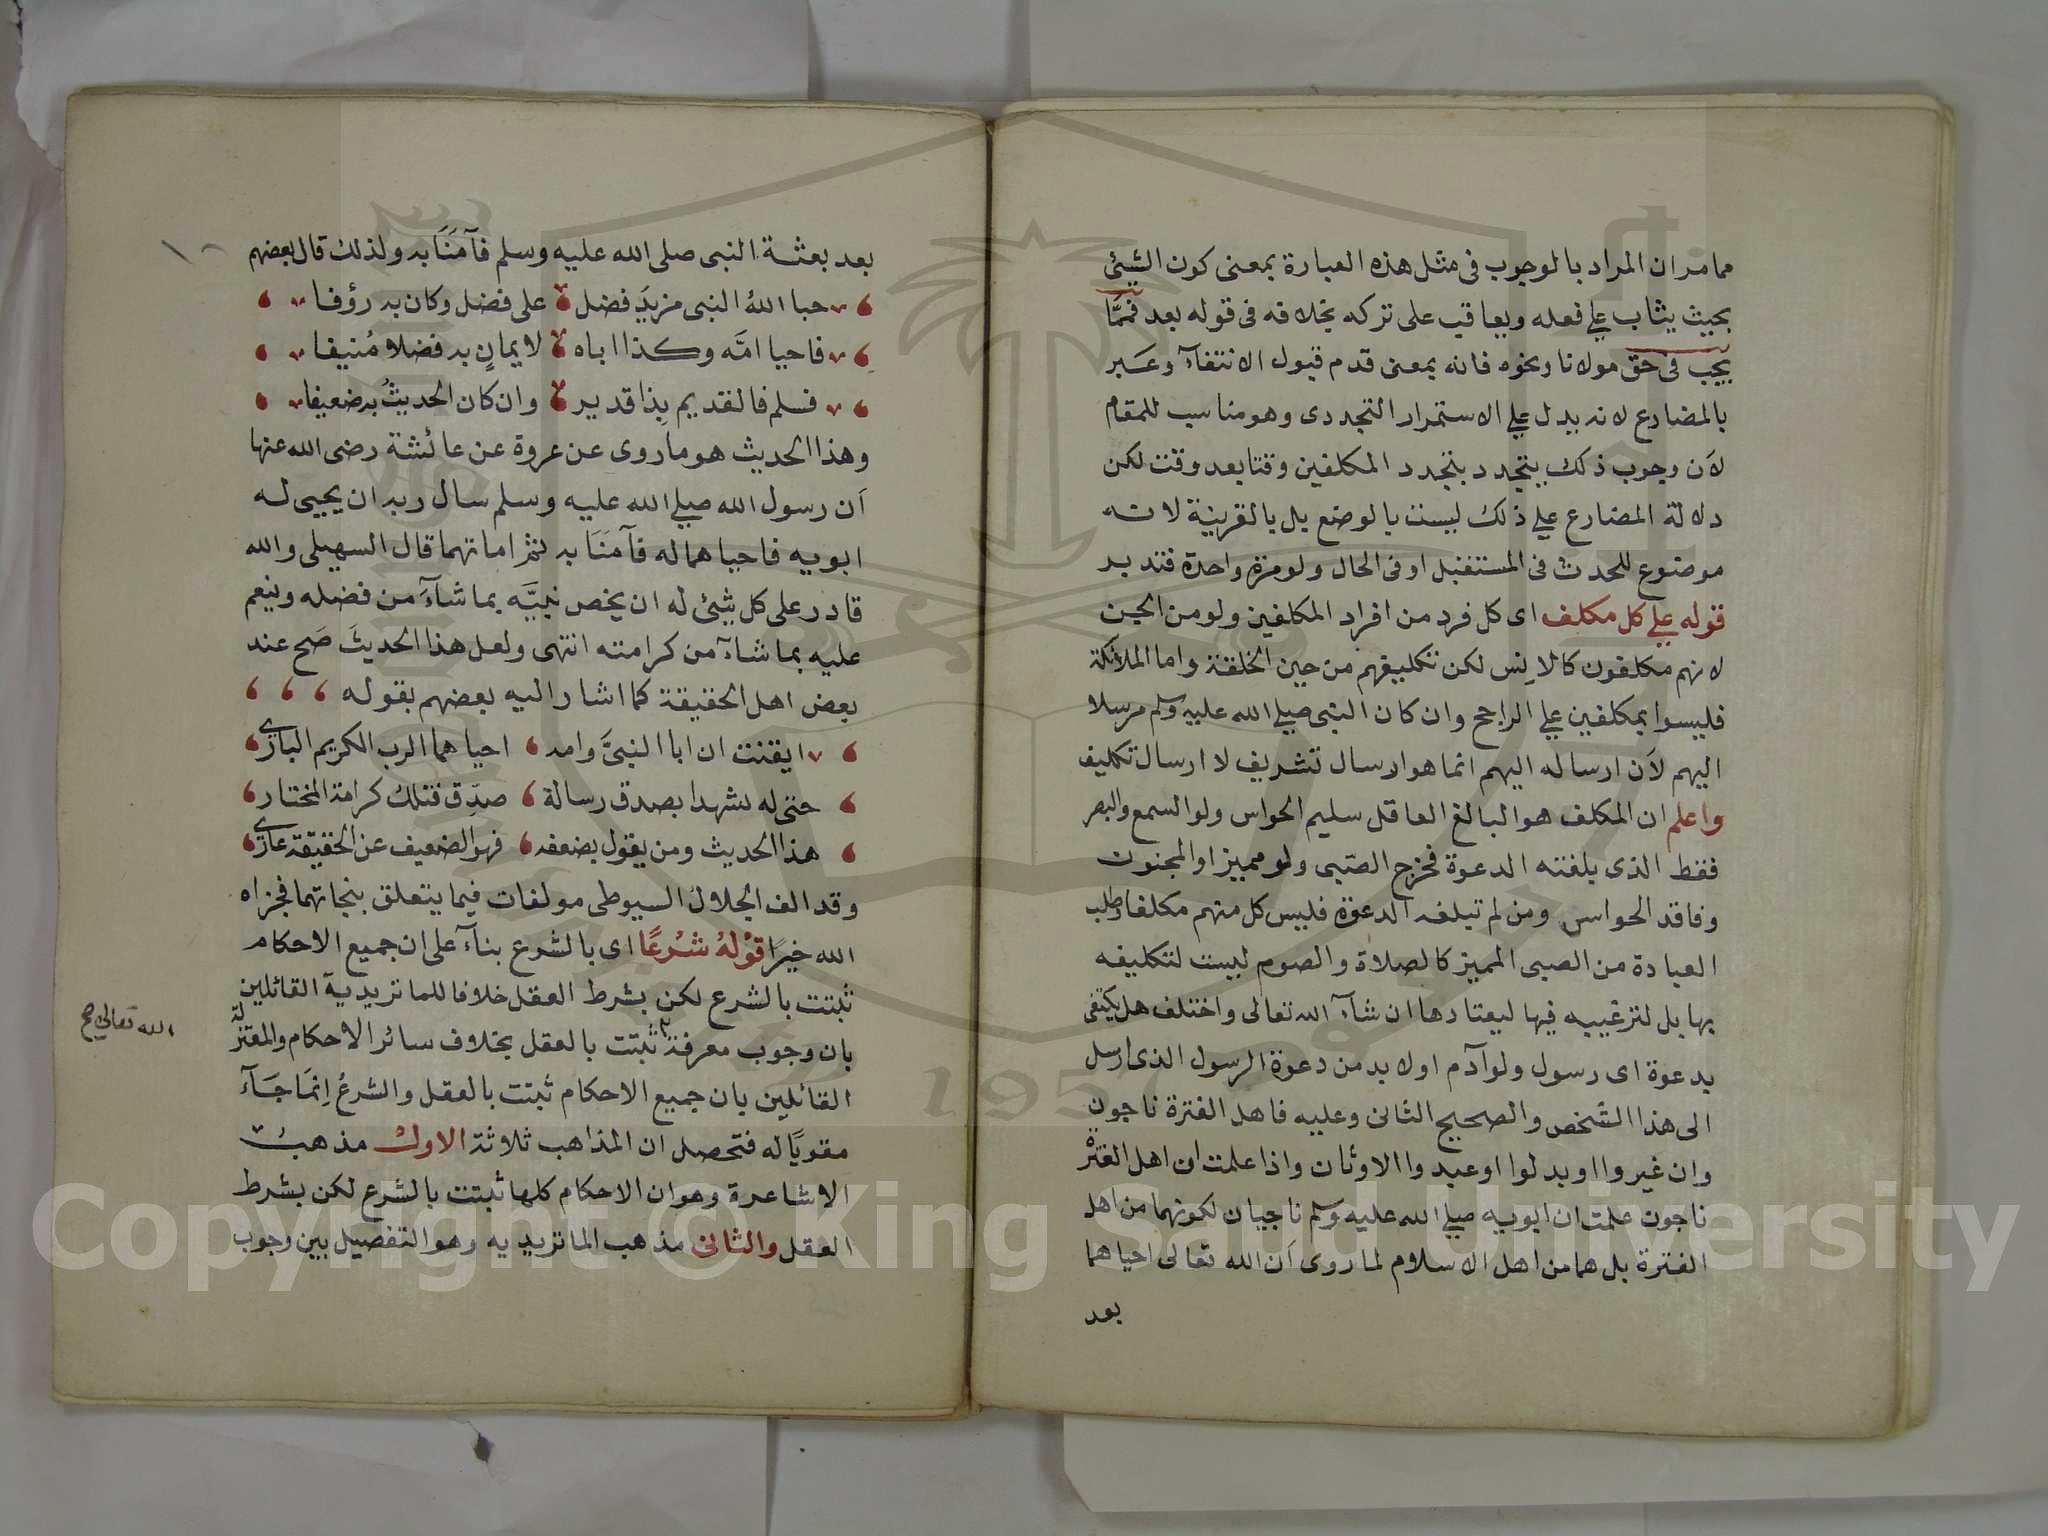 مما مر ان المراد بالوجوب فى مثل هذه العبارة بمعنى كون الشيئ
بحيث يثاب علي فعله ويعاقب على تركه بخلافه فى قوله بعد فمما
يجب فى حق مولانا ونحوه فانه بمعنى عدم قبول الانتفآء وعبر
بالمضارع لانه يدل علي الاستمرار التجددى وهو مناسب للمقام
لان وجوب ذلك يتجدد بتجدد المكلفين وقتا بعد وقت لكن
دلالة المضارع علي ذلك ليست بالوضع بل بالقرينة لانه
موضوع للحدث فى المستقبل او فى الحال ولو مرة واحدة فتدبر
قوله علي كل مكلف اى كل فرد من افراد المكلفين ولو من الجن
لانهم مكلفون كالانس لكن تكليفهم من حين الخلقة واما الملائكة
فليسوا بمكلفين علي الراجح وان كان النبى صلي الله عليه وسلم مرسلا
اليهم لان ارساله اليهم انما هو ارسال تشريف لا ارسال تكليف
واعلم ان المكلف هو البالغ العاقل سليم الحواس ولو السمع والبصر
فقط الذى بلغته الدعوة فخرج الصبى ولو مميزا والمجنون
وفاقد الحواس ومن لم تبلغه الدعوة فليس كل منهم مكلفا وطلب
العبادة من الصبى المميز كالصلاة والصوم ليست لتكليفه
بها بل لترغيبه فيها ليعتادها ان شآء الله تعالى واختلف هل يكتفى
بدعوة اى رسول ولو آدم او لا بد من دعوة الرسول الذى ارسل
الى هذا الشخص والصحيح الثانى وعليه فاهل الفترة ناجون
وان غيروا او بدلوا او عبدوا الاوثان واذا علمت ان اهل الفترة
ناجون علمت ان ابويه صلي الله عليه وسلم ناجيان لكونهما من اهل
الفترة بل هما من اهل الاسلام لما روى ان الله تعالى احياهما
بعد
بعد بعثة النبى صلى الله عليه وسلم فآمنا به ولذلك قال بعضهم
حبا الله النبى مزيد فضل على فضل وكان به رؤفا
فاحيا امه وكذا اباه لايمان به فضلا منيفا
فسلم فالقديم بذا قدير وان كان الحديث به ضعيفا
وهذا الحديث هو ما روى عن عروة عن عائشة رضى الله عنها
ان رسول الله صلي الله عليه وسلم سال ربه ان يحيى له
ابويه فاحياهما له فآمنا به ثم اماتهما قال السهيلى والله
قادر على كل شيئ له ان يخص نبيه بما شآء من فضله وينعم
عليه بما شآء من كرامته انتهى ولعل هذا الحديث صح عند
بعض اهل الحقيقة كما اشار اليه بعضهم بقوله
ايقنت ان ابا النبى وامه احياهما الرب الكريم البارى
حتى له شهدا بصدق رسالة صدق فتلك كرامة المختار
هذا الحديث ومن يقول بضعفه فهو الضعيف عن الحقيقة عارى
وقد الف الجلال السيوطى مولفات فيما يتعلق بنجاتهما فجزاه
الله خيرا قوله شرعا اى بالشرع بنآء على ان جميع الاحكام
ثبتت بالشرع لكن بشرط العقل خلافا للماتريدية القائلين
بان وجوب معرفة ثبتت بالعقل بخلاف سائر الاحكام والمعتزلة
الله تعالى صح
القائلين بان جميع الاحكام ثبتت بالعقل والشرع انما جآء
مقويا له فتحصل ان المذاهب ثلاثة الاول مذهب
الاشاعرة وهو ان الاحكام كلها ثبتت بالشرع لكن بشرط
العقل والثانى مذهب الماتريديه وهو التفصيل بين وجوب
Copyright © King Saud University
1957